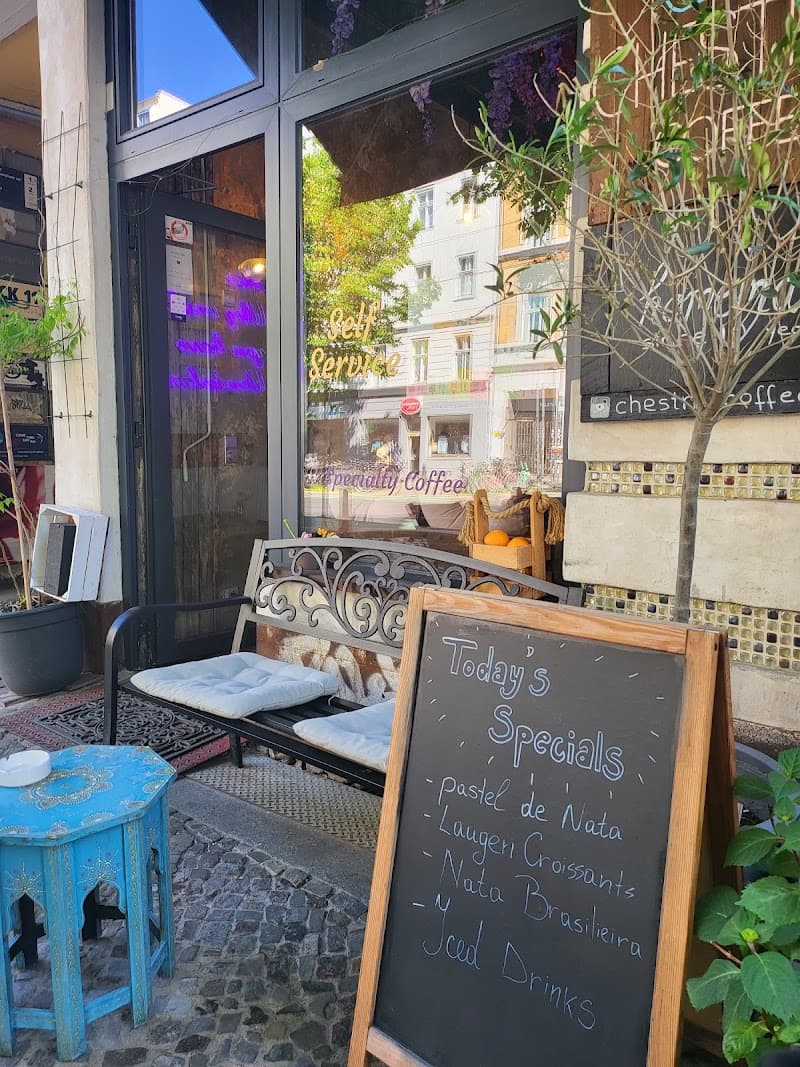 Self
Service
Specialty Coffee
Today's
Specials
- pastel de Nata
- Laugen Croissants
- Nata Brasilieira
- Iced Drinks